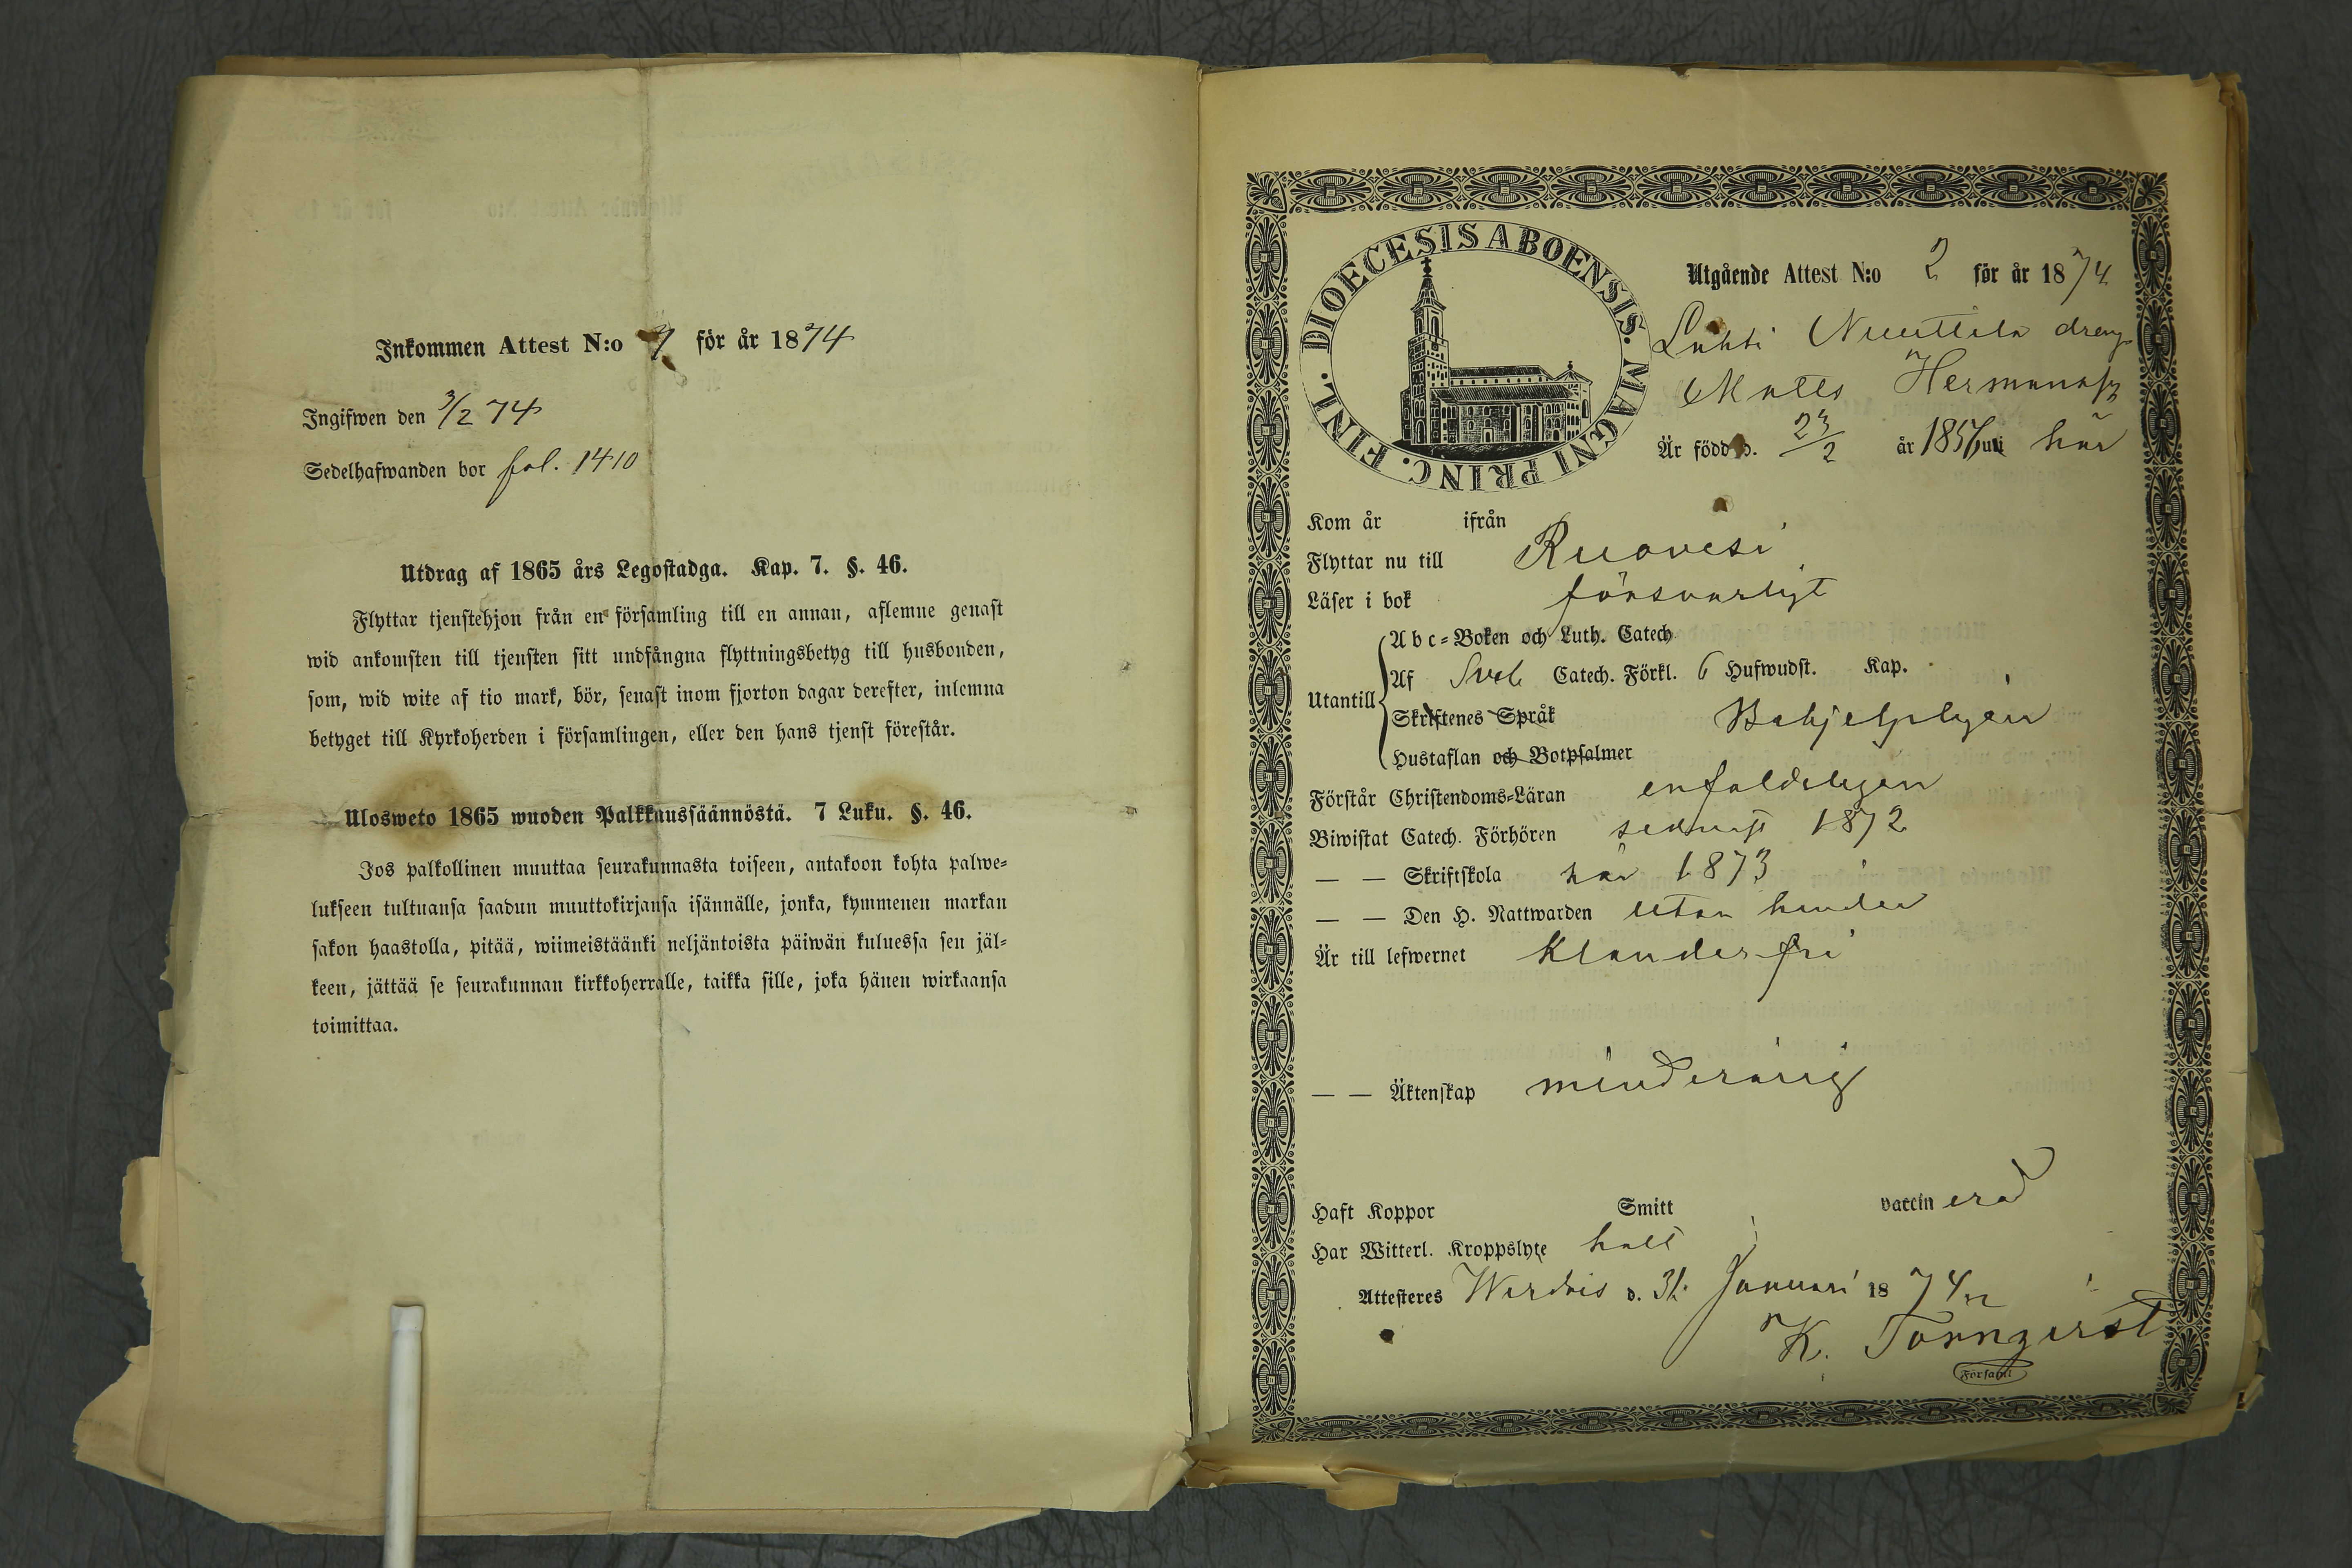 Inkommen Attest N:o 7 för år 1874
Ingifwen den 3/2 74
Sedelhafwanden bor fol. 1410
Utdrag af 1865 års Legostadga. Kap. 7. §. 46.
Flyttar tjenstehjon från en församling till en annan, aflemne genast
wid ankomsten till tjensten sitt undfångna flyttningsbetyg till husbonden,
som, wid wite af tio mark, bör, senast inom fjorton dagar derefter, inlemna
betyget till Kyrkoherden i församlingen, eller den hans tjenst förestår.
Ulosweto 1865 wuoden Palkkaussäännöstä. 7 Luku. §. 46.
Jos palkollinen muuttaa seurakunnasta toiseen, antakoon kohta palwe-
lukseen tultuansa saadun muuttokirjansa isännälle, jonka, kymmenen markan
sakon haastolla, pitää, wiimeistäänki neljäntoista päiwän kuluessa sen jäl-
keen, jättää se seurakunnan kirkkoherralle, taikka sille, joka hänen wirkaansa
toimittaa.
DIOECESIS ABOENSIS. MAGNI PRINC. FINL.
Utgående Attest N:o 2 för år 1874
Lahti Nuuttila dreng
Matts Hermansson
Är född d. 23/2 år 1857 uti här
Kom år ifrån
Flyttar nu till Ruovesi
Läser i bok försvarligt
Utantill
Abc-Boken och Luth. Catech.
Af Sveb Catech. Förkl. 6 Hufwudst. Kap.
Skriftenes Språk Behjelpligen
Hustaflan och Botpsalmer
Förstår Christendoms-Läran enfaldeligen
Biwistat Catech. Förhören sednast 1872
— — Skriftskola här 1873
— — Den H. Nattwarden utan hinder
Är till lefwernet Klanderfri
— — Äktenskap minderårig
Haft Koppor Smitt vaccinerad
Har Witterl. Kroppslyte halt
Attesteres Werdois d. 31 Januari 1874
K. Törnqvist
Församl